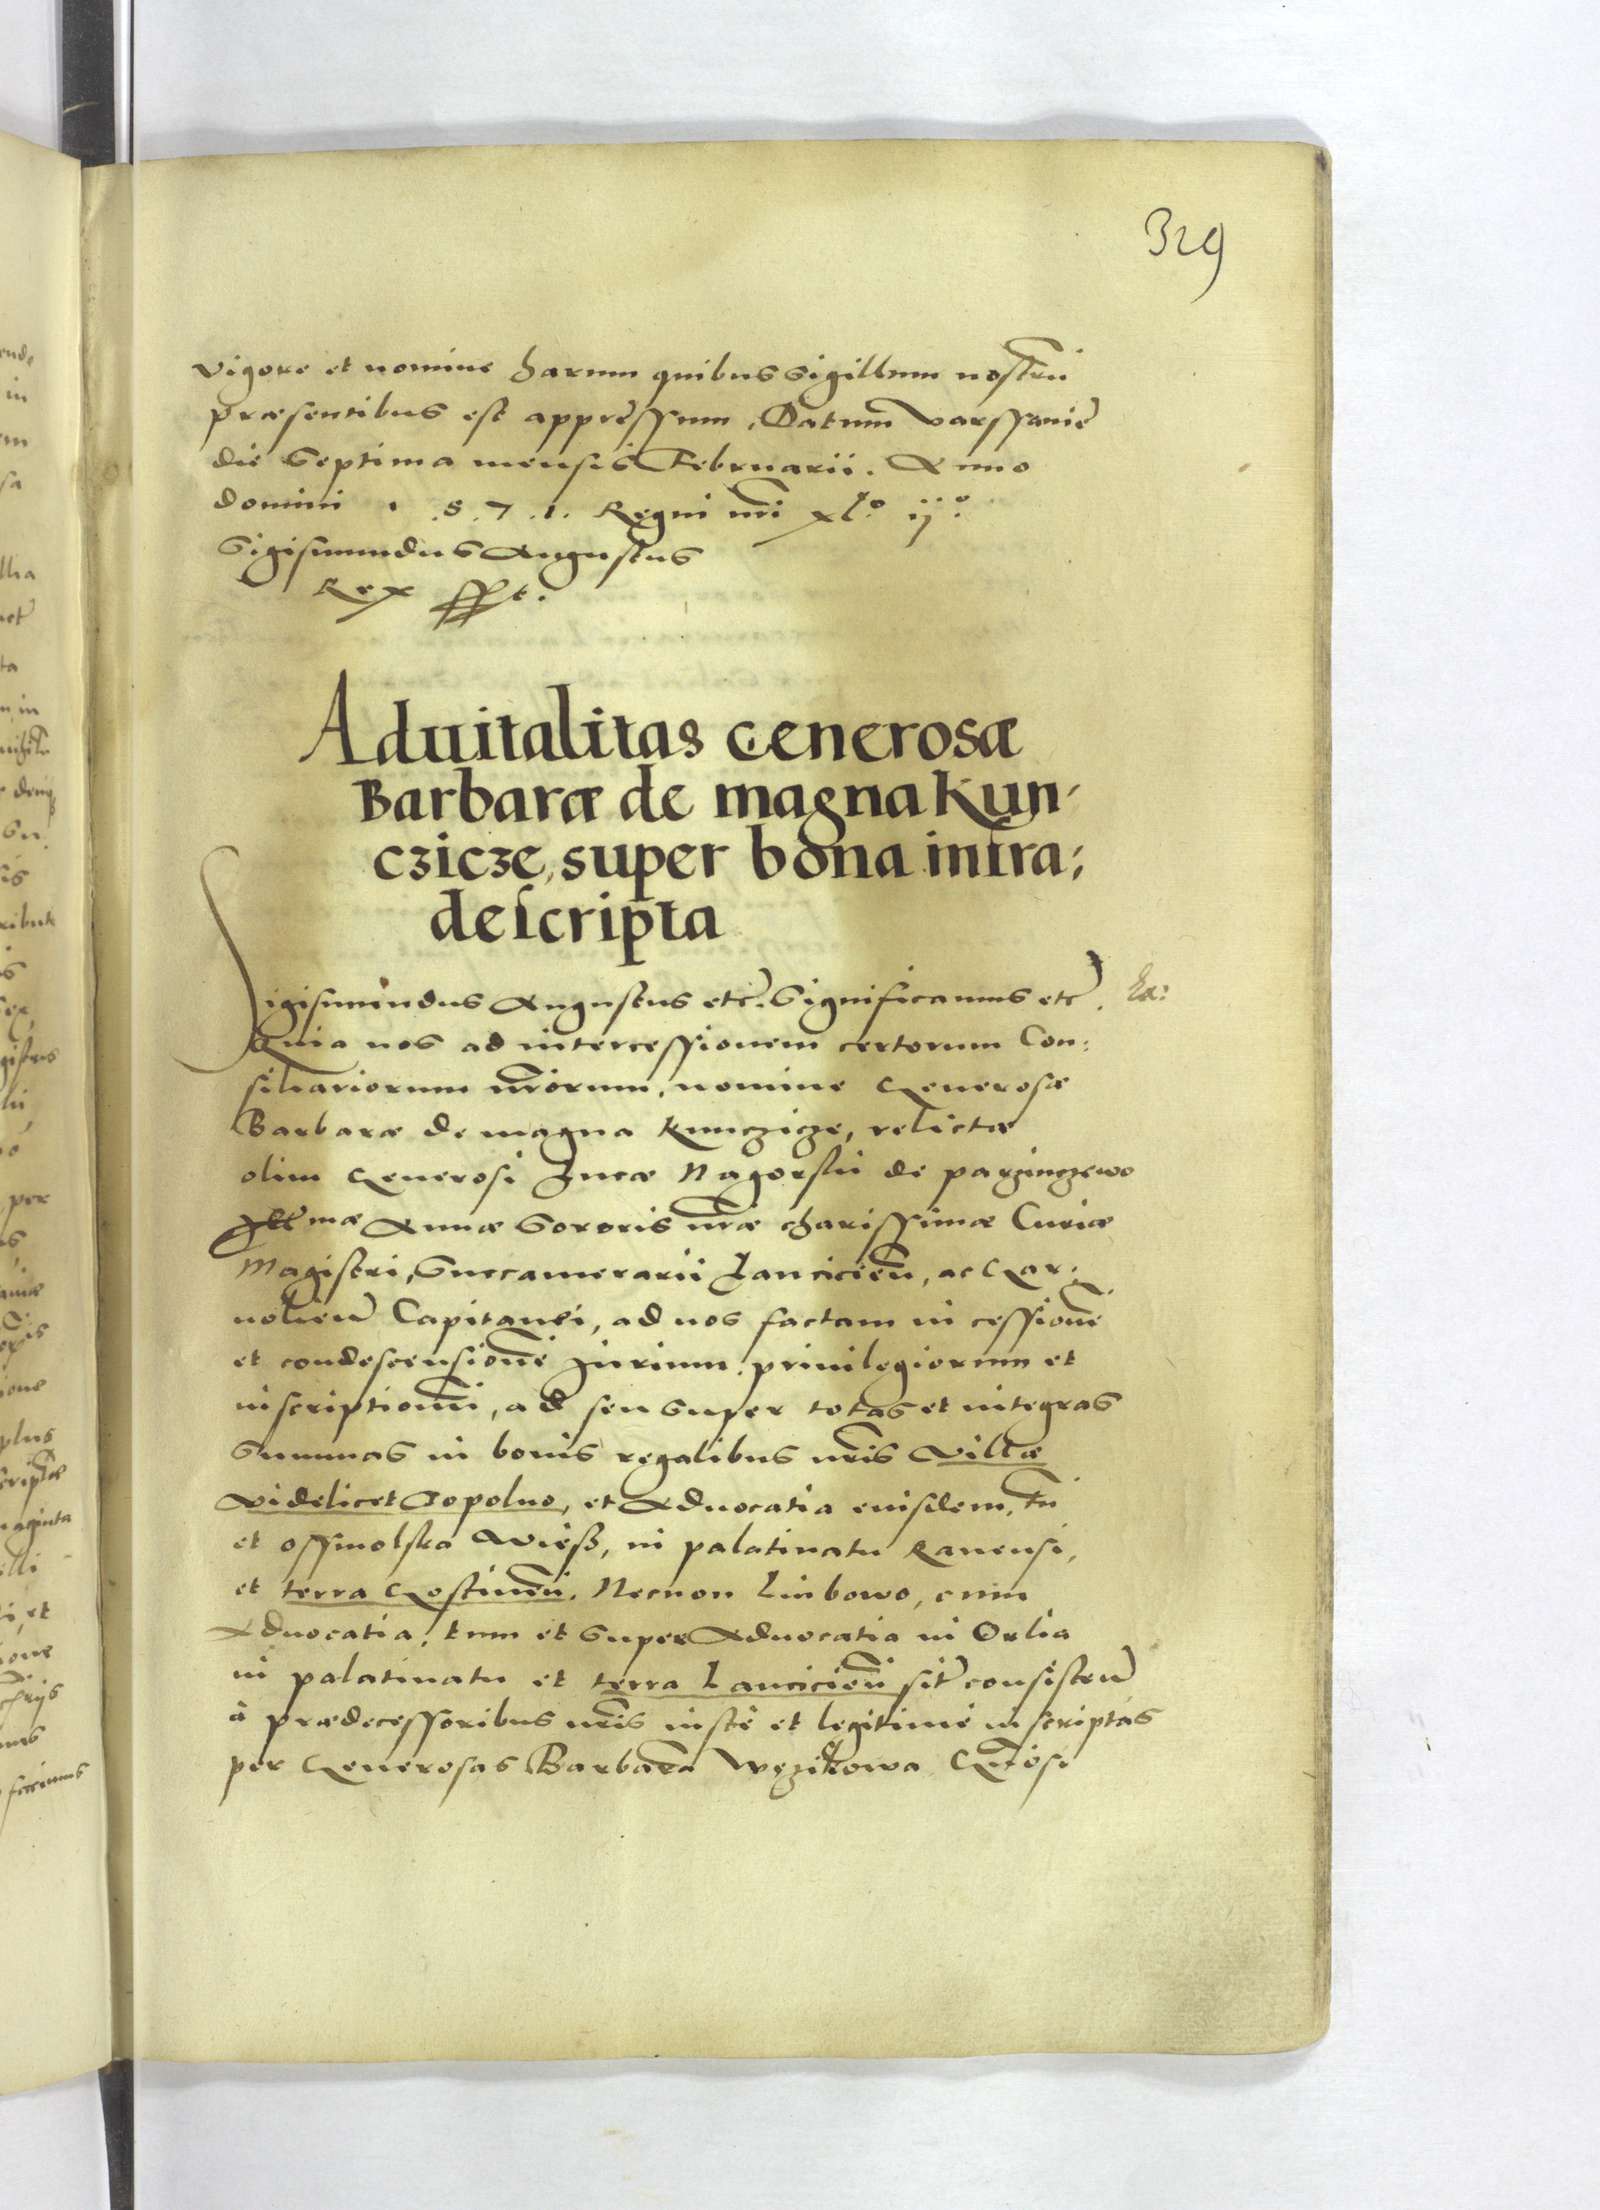 329
vigore et nomine harum quibus sigillum nostrũ
præsentibus est appressum. Datum Varssavie
die Septima mensis Februarii. Anno
domini 1.5.7.1. Regni nr̃i xl° ij°
Sigismundus Augustus
Rex sspt.
Aduitalitas Generosæ
Barbaræ de magna Kun-
cziczе, super bona infra;
descripta
Sigismundus Augustus etc̃. Significamus etc̃.
Quia nos ad intercessionem certorum Con:
siliariorum nr̃orum, nomine Generosæ
Barbaræ de magna Kunczicze, relictæ
olim Generosi Lucæ Nagorski de parzinczewo
Illmæ Annæ Sororis nr̃æ charissimæ Curiæ
Magistri, Succamerarii Lancicieñ, ac Gar:
volieñ Capitanei, ad nos factam in cessionẽ
et condescensionẽ Jurium, privilegiorum et
inscriptionũ, ad seu super totas et integras
Summas in bonis regalibus nr̃is Villæ
videlicet Topolno, et Advocatia eiusdem, tũ
et ossmolska Wiess, in palatinatu Ravensi,
et terra Gostineñ. Necnon Linbowo, cum
Advocatia, tum et super Advocatia in Orlia
in palatinatu et terra Lancicieñ sit̃ consisteñ
à prædecessoribus nr̃is iustè et legitimè inscriptas
per Generosas Barbara Wezikowa Gñosi